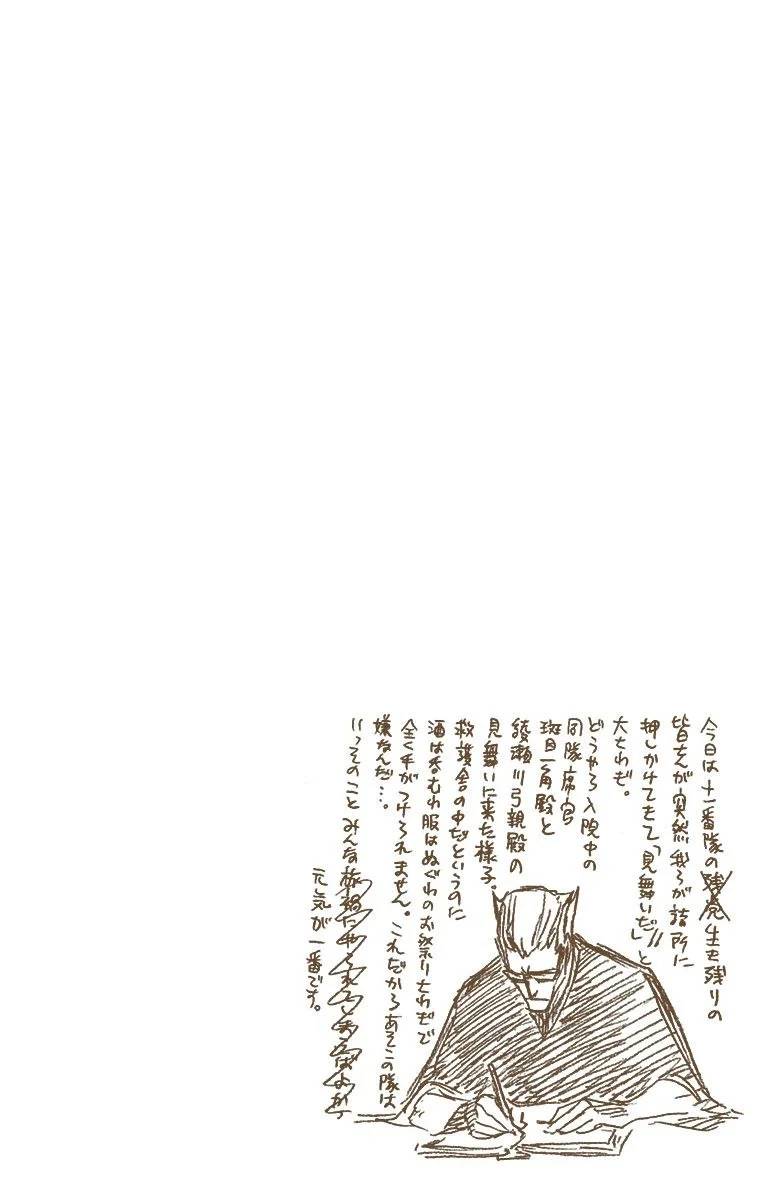 今日は十一番隊の残党生き残りの
皆さんが突然我らが詰所に
押しかけてきて「見舞いだ!!」と
大さわぎ。
どうやら入院中の
同隊席官
斑目一角殿と
綾瀬川弓親殿の
見舞いに来た様子。
救護舎の中だというのに
酒は呑むわ服はぬぐわのお祭りさわぎで
全く手がつけられません。これだからあそこの隊は
嫌なんだ…。
いっそのことみんな旅禍にやられてしまえばよか
元気が一番です。